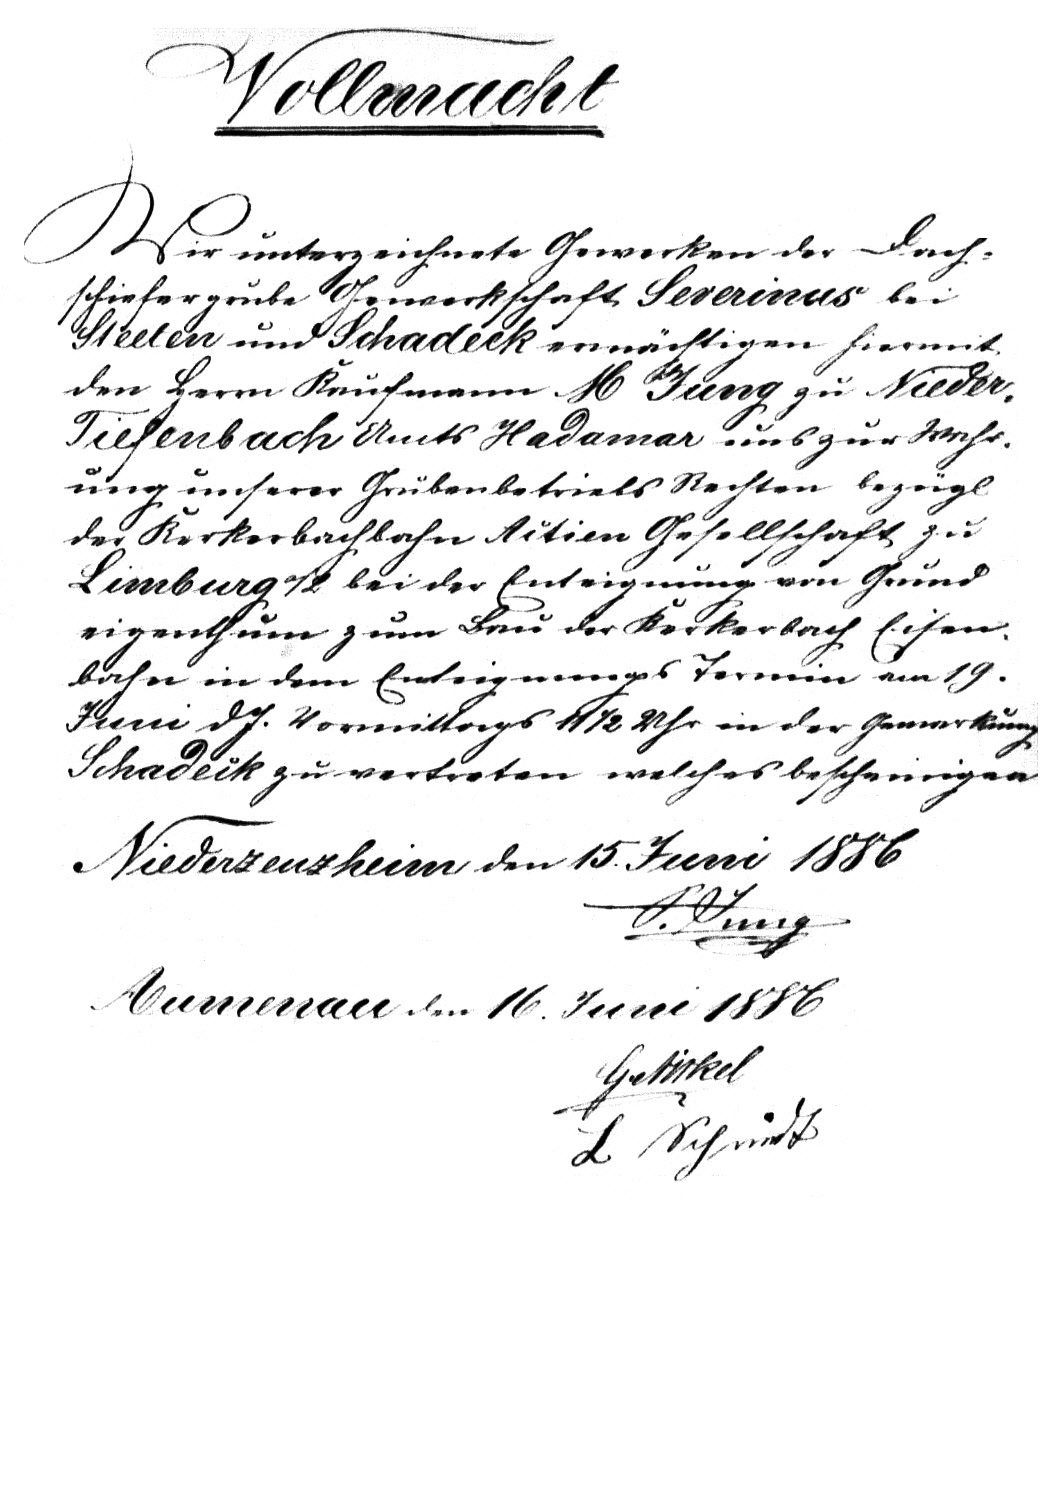 Vollmacht
Wir unterzeichnete Gewerken der Dach-
schiefergrube Gewerkschaft Severinus bei
Steeten und Schadeck ermächtigen hiermit
den Herrn Kaufmann M Jung zu Nieder-
Tiefenbach Amts Hadamar uns zur Wahr-
ung unserer Grubenbetriebs Rechten bezügl
der Kerkerbachbahn Actien Gesellschaft zu
Limburg a/L bei der Enteignung von Grund
eigenthum zum Bau der Kerkerbach Eisen-
bahn in dem Enteignungs Termin am 19.
Juni dJ. Vormittags 11 1/2 Uhr in der Gemarkung
Schadeck zu vertreten welches bescheinigen
Niederzeuzheim den 15. Juni 1886
Jung
Aumenau den 16. Juni 1886
L Schmidt